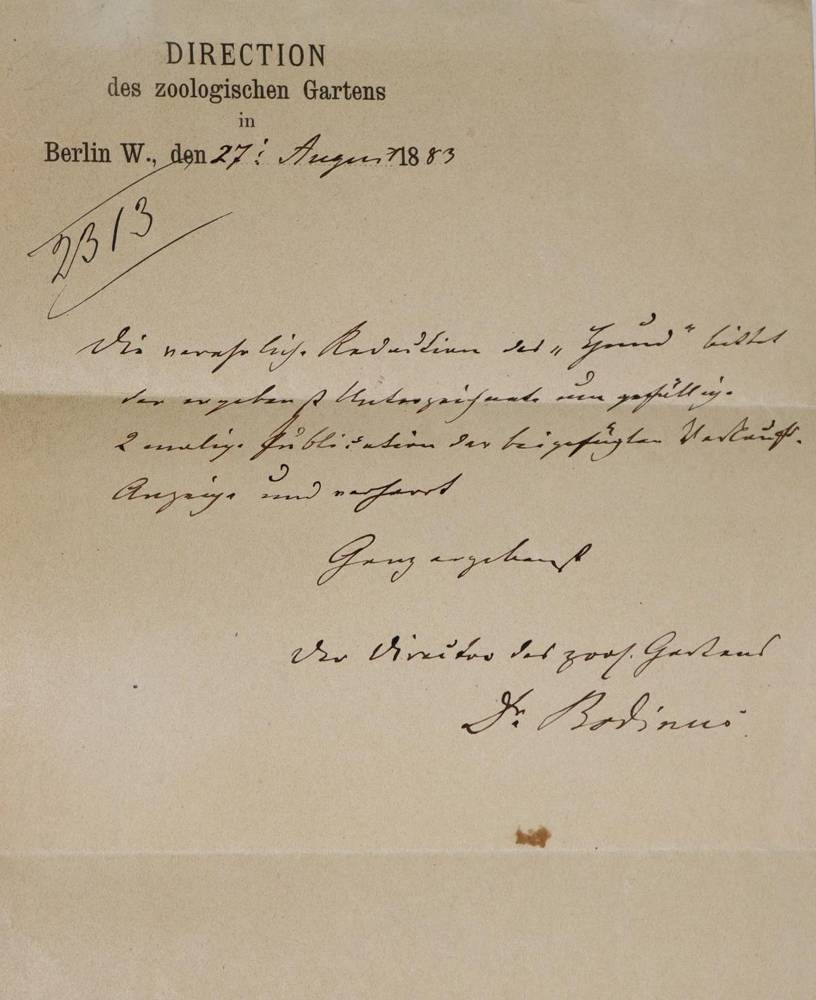 DIRECTION
des zoologischen Gartens
in
Berlin W., den 27. August 1883
2313
Die verehrliche Redaction des „Hund“ bittet
der ergebenst Unterzeichnete um gefällige
2 malige Publication der beigefügten Verkaufs-
Anzeige und verharrt
Ganz ergebenst
Der Director des zool. Gartens
Dr. Bodinus.